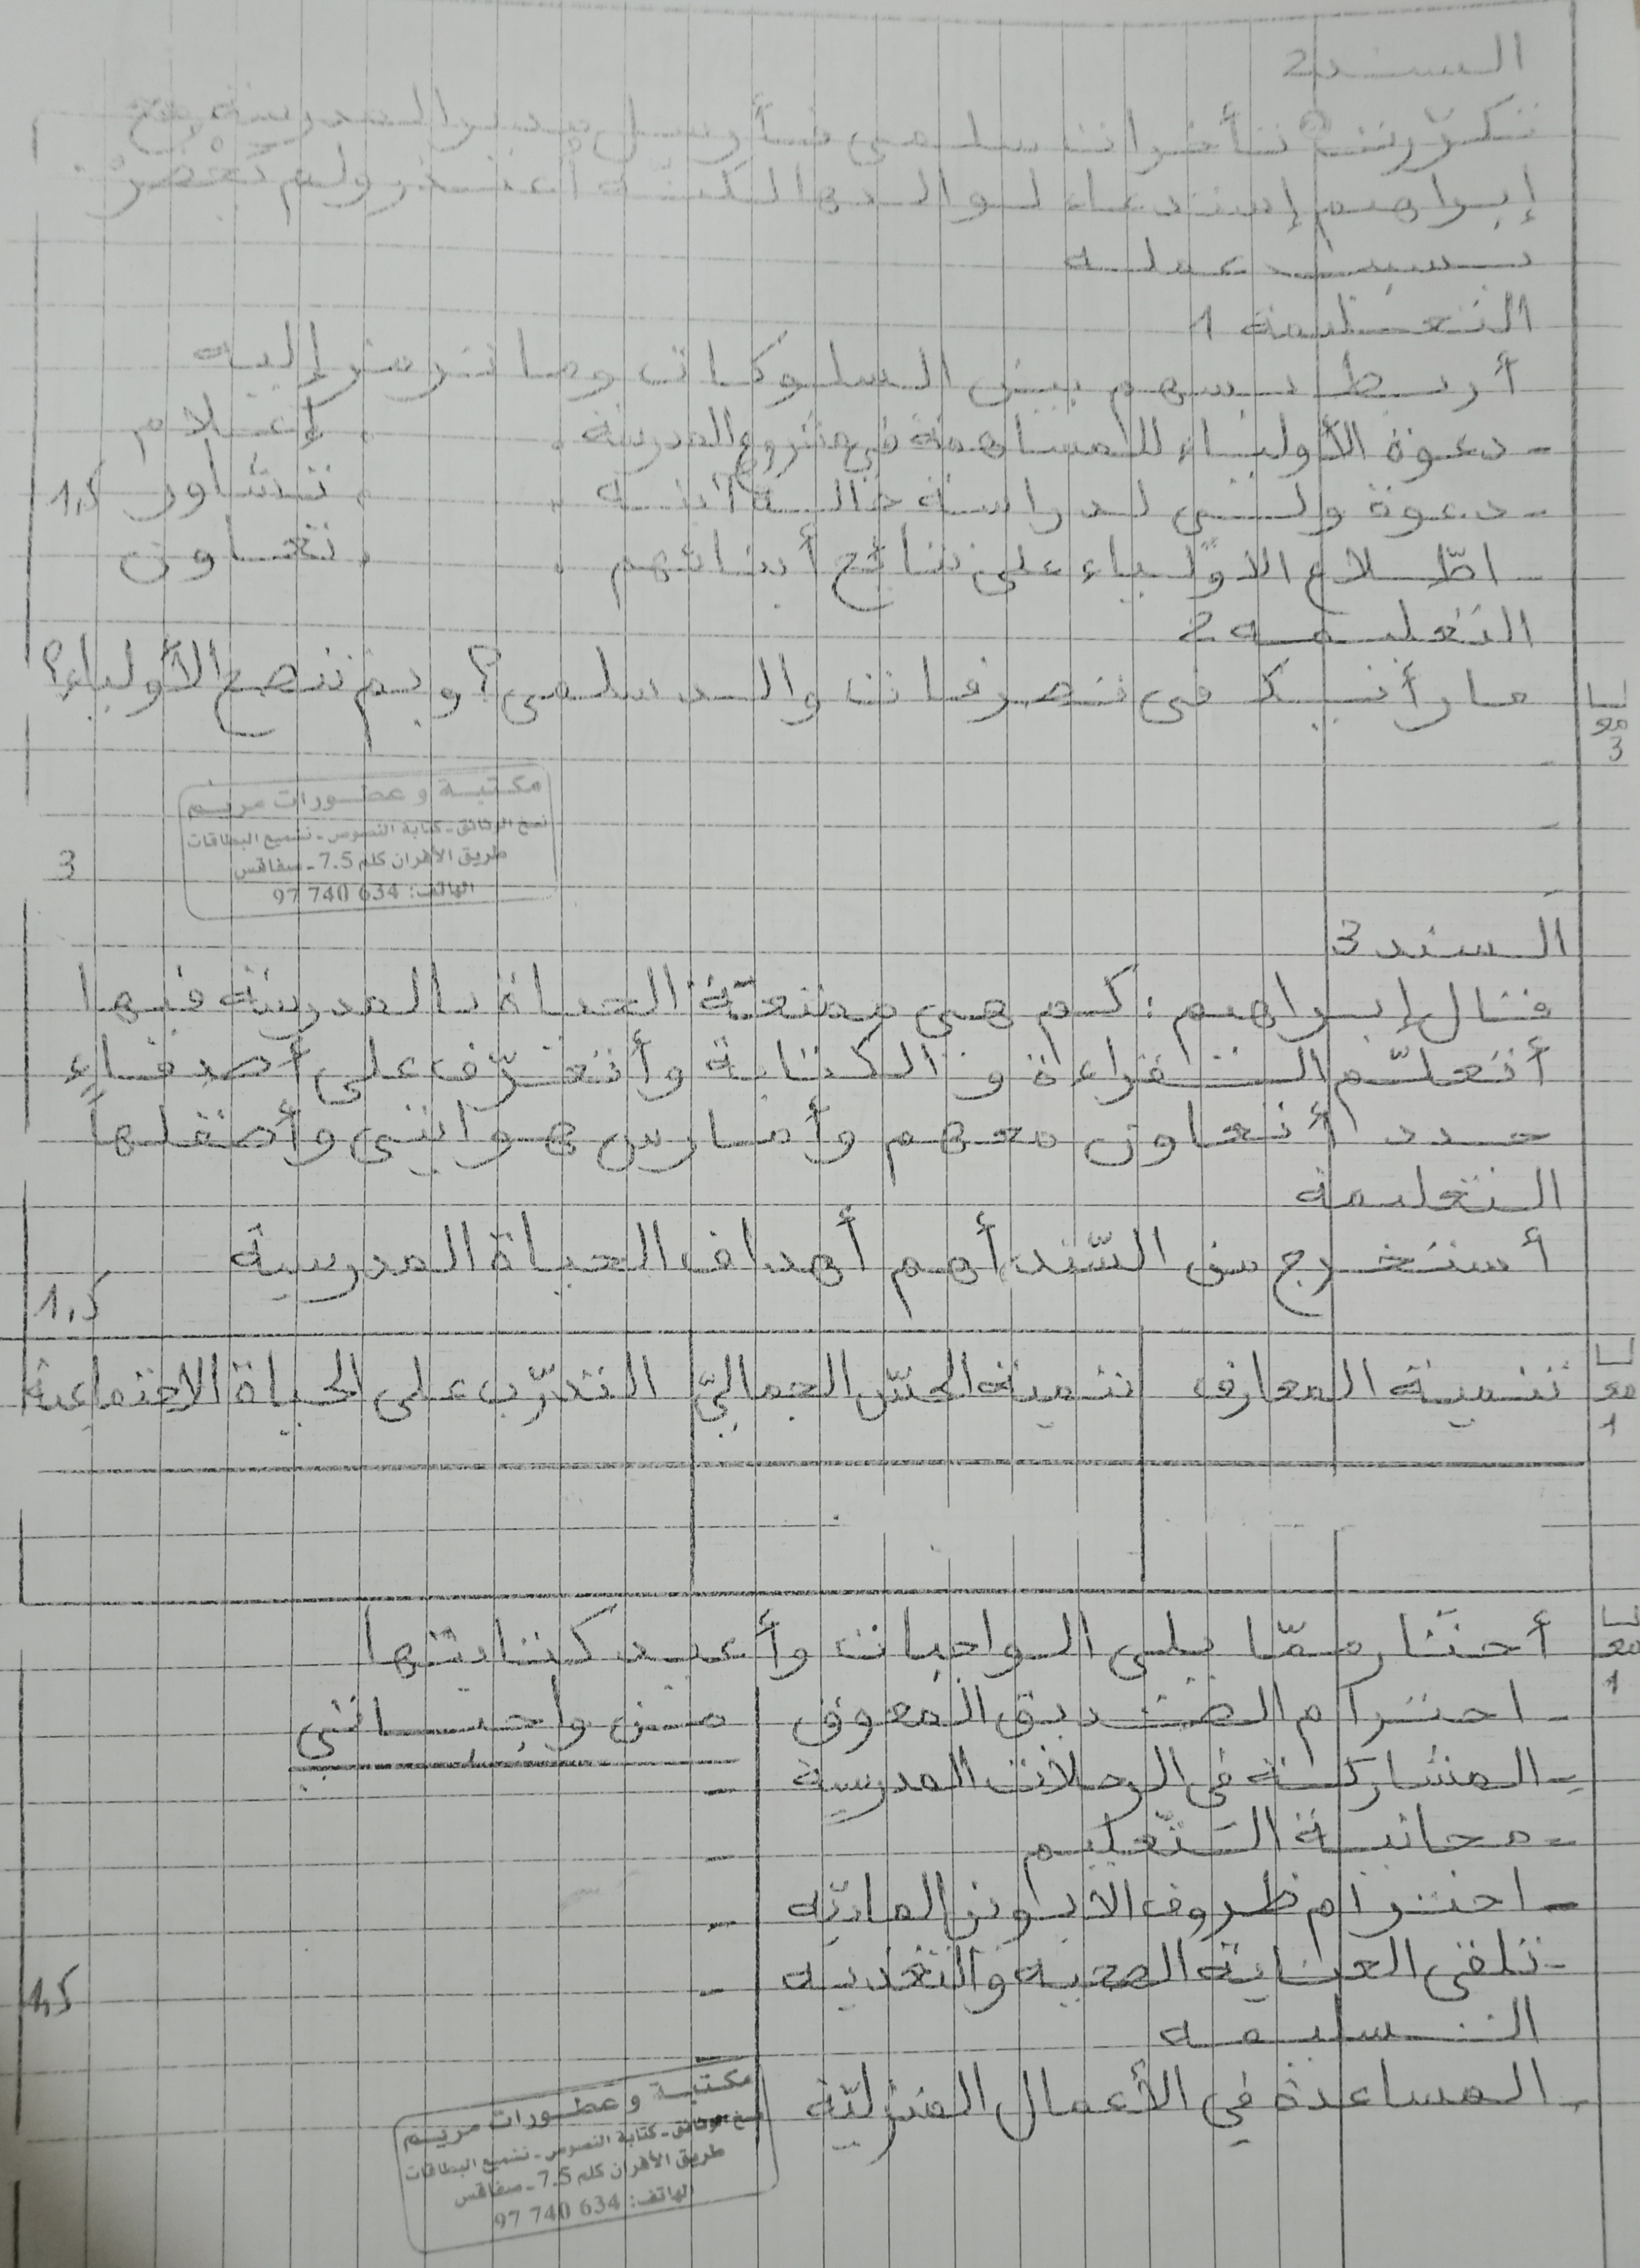 السند2
تكرّرت تأخرات سلمى فأرسل مدير المدرسة مع
إبراهيم إستدعاء لوالدها لكنّه اعتذر ولم يحضر
بسبب عمله
التعليمة 1
أربط بسهم بين السلوكات وما ترمز إليه
- دعوة الأولياء للمساهمة في مشروع المدرسة . . إعلام
- دعوة ولي لدراسة حالة ابنه . . تشاور 1,5
- اطّلاع الأولياء على نتائج أبنائهم . . تعاون
التعليمه 2
ما رأيك في تصرفات والد سلمى؟ وبم تنصح الأولياء؟
مع 3
-
-
مكتبة و عطورات مريم
نسخ الوثائق - كتابة النصوص - تشميع البطاقات
طريق الأفران كلم 7.5 - صفاقس
الهاتف: 634 740 97
3
السند 3
قال إبراهيم : كم هي ممتعة الحياة بالمدرسة فيها
أتعلّم القراءة و الكتابة وأتعرّف على أصدقاء
جدد أتعاون معهم وأمارس هوايتي وأصقلها
التعليمة
أستخرج من السّند أهم أهداف الحياة المدرسية
1,5
تنمية المعارف تنمية الحسّ الجماليّ التدرّب على الحياة الاجتماعية
مع 1
أختار ممّا يلي الواجبات وأعيد كتابتها
مع 1
- احترام الصديق المعوق من واجباتي
- المشاركة في الرحلات المدرسية -
- مجانية التعليم -
- احترام ظروف الأبوين الماديّه -
- تلقي العناية الصحيه والتغذيه -
السليمه 1,5
- المساعدة في الأعمال المنزليّة
مكتبة و عطورات مريم
نسخ الوثائق - كتابة النصوص - تشميع البطاقات
طريق الأفران كلم 7.5 - صفاقس
الهاتف: 634 740 97